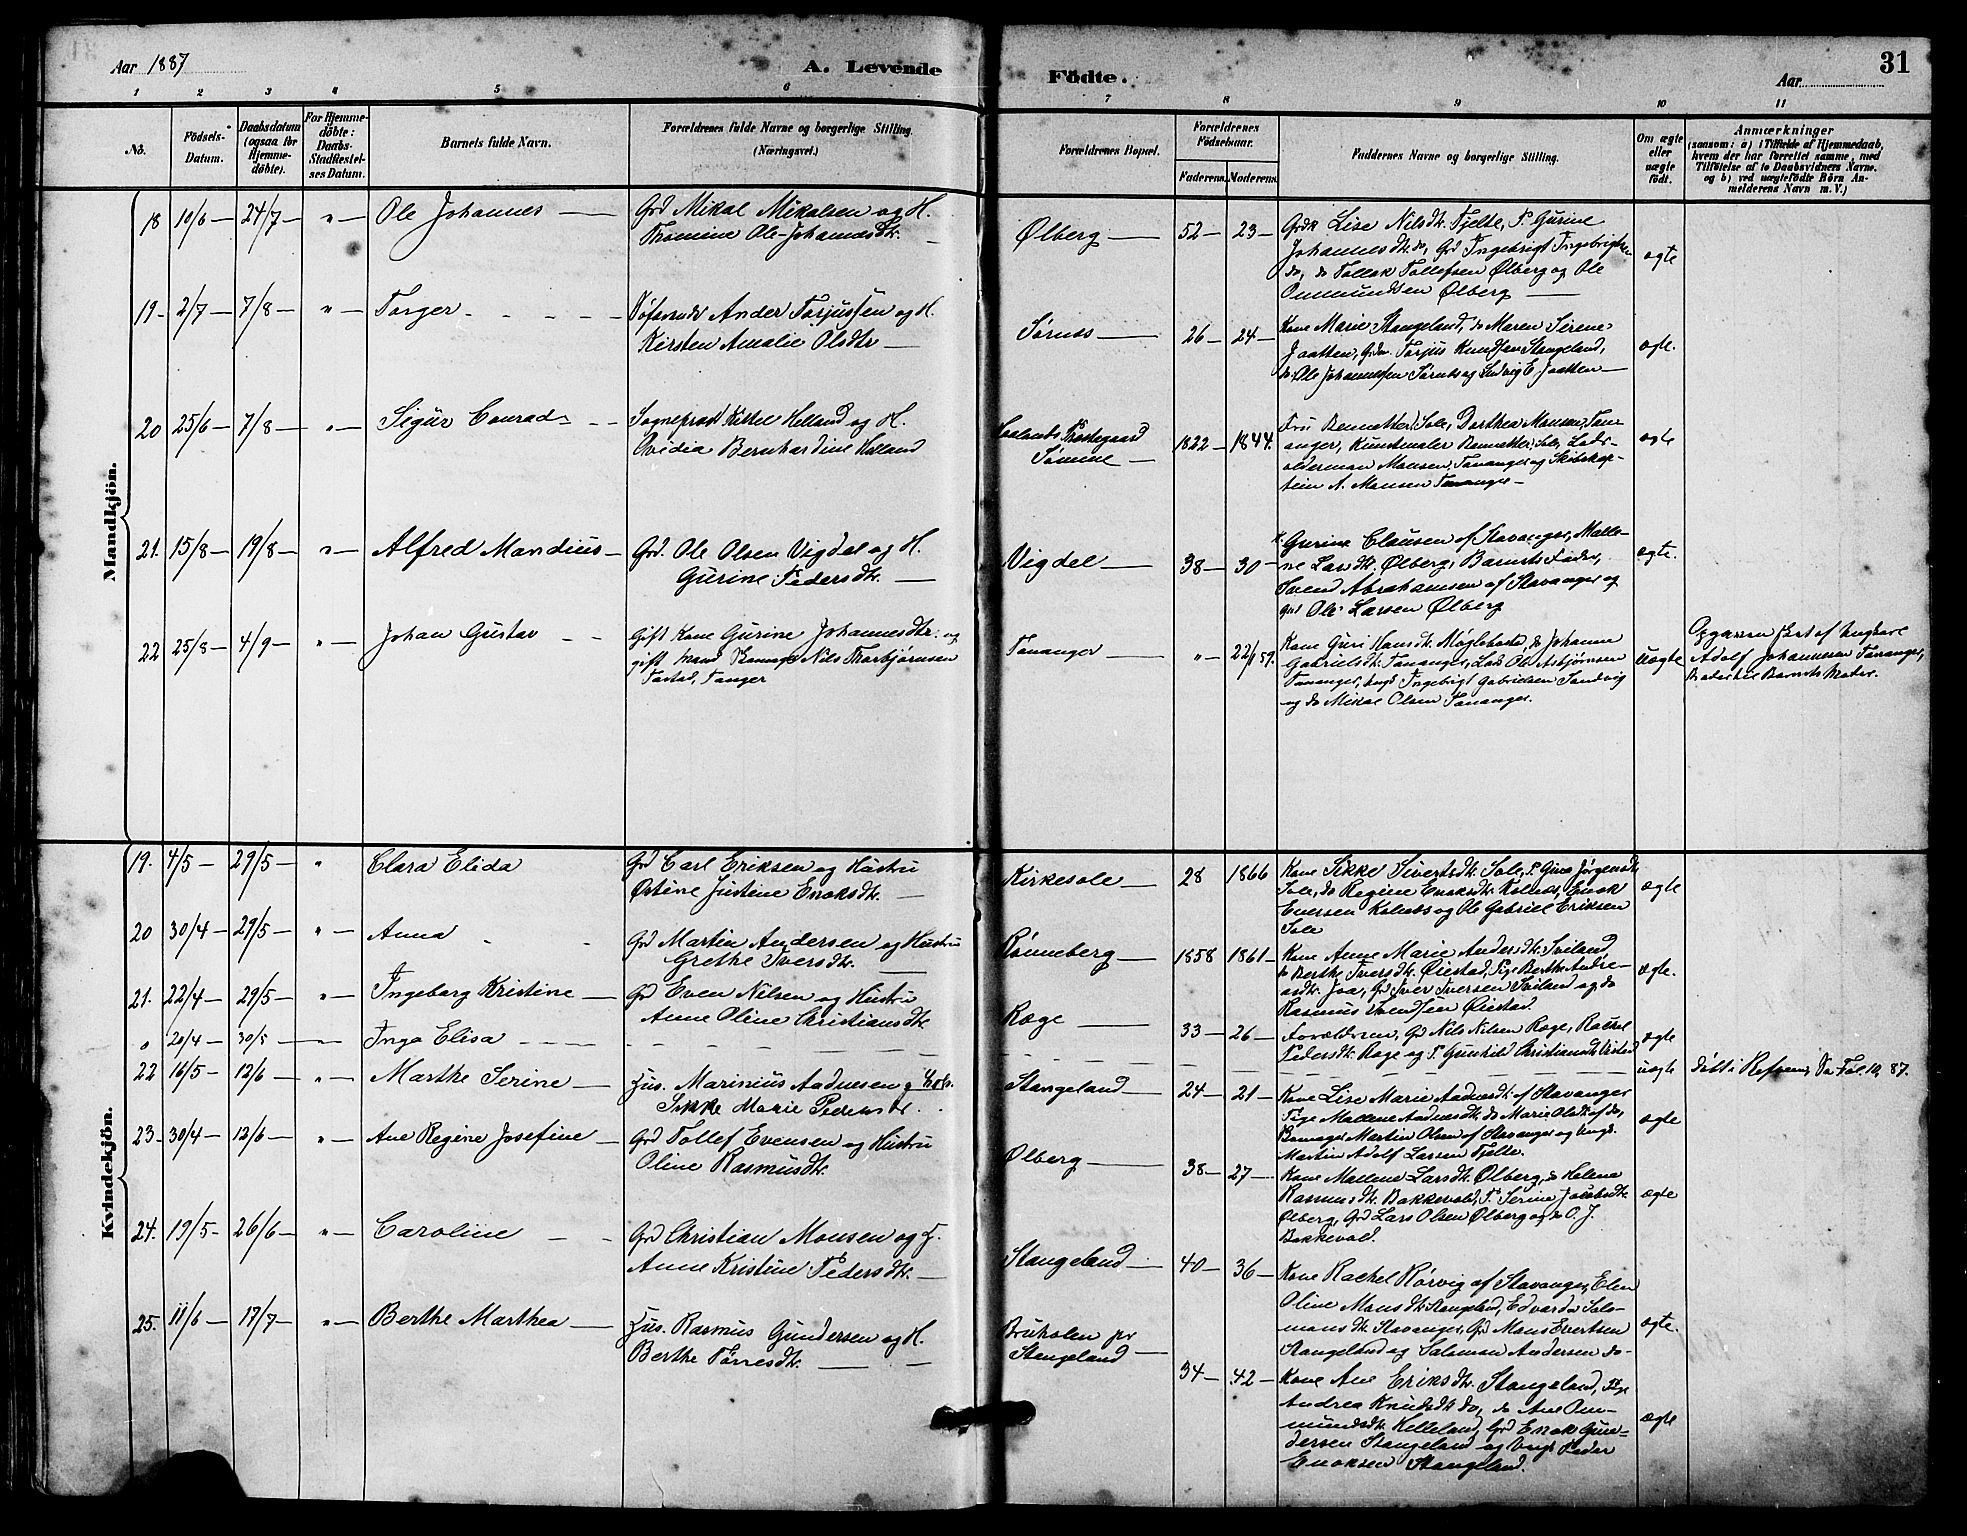 Aar 1887
A. Levende
Födte.
Aar
31
1 2 3 4 5 6 7 8 9 10 11
No.
Födsels-Datum.
Daabsdatum (ogsaa for Hjemme-döbte).
For Hjemme-döbte: Daabs-Stadfæstel-ses Datum.
Barnets fulde Navn.
Forældrenes fulde Navne og borgerlige Stilling. (Næringsvei.)
Forældrenes Bopæl.
Forældrenes Födselsaar.
Faderens. Moderens.
Faddernes Navne og borgerlige Stilling.
Om ægte eller uægte födt.
Anmærkninger
(saasom: a) i Tilfælde af Hjemmedaab,
hvem der har forrettet samme, med
Tilföielse af to Daabsvidners Navne.
og b) ved uægtefödte Börn An-
melderens Navn m. V.)
Mandkjön.
18 10/6 — 24/7 — " — Ole Johannes — Grd Mikal Mikalsen og H.
Thomine Ole-Johannesdtr. —
Ølberg — 52 — 23 — Grdk Lise Nilsdtr. Tjelte, P. Gurine
Johannesdtr. do, Grd Ingebrigt Ingebrigtsen
do, do Tollak Tollefsen Ølberg og Ole
Ommundsen Ølberg —
ægte
19 — 2/7 — 7/8 — " — Torger - - - Ander Torjussen og H.
Kersten Amalie Olsdtr —
Sørnes — 26 — 24 — Kone Marie Stangeland, do Maren Serine
Jaatten, Grdm. Torjus Knudsen Stangeland,
do. Ole Johannessen Sørnes og Ludvig E. Jaatten —
ægte.
20 25/6 — 7/8 — " — Sigur Conrad - - Sogneprest Kittel Helland og H.
Ovidia Bernhardine Helland
Haalands Prestegaard
Sømme — 1822 — 1844. Fru Bennetter, Sole, Dorthea Monsen, Tan-
anger, Kunstmaler Bennetter, Sole, Lods-
olderman Monsen, Tananger og Skibskap-
tein A. Monsen Tananger —
ægte
21. 15/8 — 19/8 — " — Alfred Mandius — Grd. Ole Olsen Vigdal og H.
Gurine Pedersdtr. —
Vigdel — 38 — 30 — K. Gurine Clausen af Stavanger, Malle-
ne Larsdtr. Ølberg, Barnets Fader,
Svend Abrahamsen af Stavanger og
Grd Ole Larsen Ølberg
ægte.
22 25/8 — 4/9 — " — Johan Gustav - - Gift Kone Gurine Johannesdtr. og
gift Mand Nils Thorbjørnsen
Tastad, Tanger
Tananger — " — 22/1 59. Kone Guri Hansdtr. Møglebostø, do Johanne
Gabrielsdtr. Tananger, Lods Ole Asbjørnsen
Tananger, Ungk Ingebrigt Gabrielsen Sandvig
og do Mikal Olsen Tananger.
Uægte
Opgaven af Ungkarl
Adolf Johannesen Tananger,
Broder til Barnets Moder.
Kvindekjön.
19. 4/5 — 29/5 — " Clara Elida Grd Carl Eriksen og Hustru
Østine Justine Enoksdtr. —
Kirkesole — 28 1866 Kone Sikke Sivertsdtr. Sole, P. Gina Jørgensdtr
Sole, do Regine Enoksdtr. Kolnes, Enok
Evensen Kolnes og Ole Gabriel Eriksen
Sole
ægte
20 30/4 — 29/5 — " — Anna - - Grd Martin Andersen og Hustru
Grethe Iversdtr. —
Rønneberg — 1858 1861 — Kone Anne Marie Andersdtr. Sviland,
do Berthe Iversdtr. Øiestad, Pige Berthe Andre-
asdtr. Joa, Grd Iver Iversen Sviland og do
Rasmus Svendsen Øiestad.
ægte.
21. 22/4 — 29/5 — " — Ingeborg Kristine — Grd Even Nilsen og Hustru
Anne Oline Christiansdtr.
Ræge — 33 — 26 — Forældrene, Grd Nils Nilsen Ræge, Rachel
Pedersdtr. Ræge og P. Gunhild Christiansdtr. Vistad
ægte
0 20/4 — 30/5 — " — Inga Elisa - - - -
uægte døbt i Refsenes Se Fol. 10, 87.
22 16/5 — 12/6 — " — Marthe Serine — Hus. Marinius Aadnesen og Hus.
Sikke Marie Pedersdtr.
Stangeland — 24 — 21 — Kone Lise Marie Aadnesdtr. af Stavanger
Pige Mallene Aadnesdtr. do Marie Olsdtr. af do,
Martin Olsen af Stavanger og Ungk.
Martin Adolf Larsen Tjelte.
ægte
23 — 30/4 — 12/6 — " — Ane Regine Josefine — Grd Tollef Evensen og Hustru
Oline Rasmusdtr.
Ølberg — 38 — 27 — Kone Mallene Larsdtr. Ølberg, do Helene
Rasmusdtr. Bakkevold, P. Serine Jacobsdtr.
Ølberg, Grd Lars Olsen Ølberg og do O. J.
Bakkevold.
ægte
24. 19/5 — 26/6 — " — Caroline - - Grd Christian Monsen og H.
Anne Kristine Pedersdtr. —
Stangeland — 40 — 36 — Kone Rachel Rørvig af Stavanger, Elen
Oline Monsdtr. Stangeland, Edvarda Salo-
monsdtr. Stavanger, Grd Mons Evertsen
Stangeland og Salomon Andersen do —
ægte.
25. 11/6 — 17/7 — " — Berthe Marthea — Hus. Rasmus Gundersen og H.
Berthe Tørresdtr. — —
Bruholen pr
Stangeland — 34 — 42 — Kone Ane Eriksdtr. Stangeland, Pige
Andrea Knudsdtr. do, do Ane Om-
mundsdtr. Kelleland, Grd Enok Gun-
dersen Stangeland og Ungk Peder
Enoksen Stangeland.
ægte